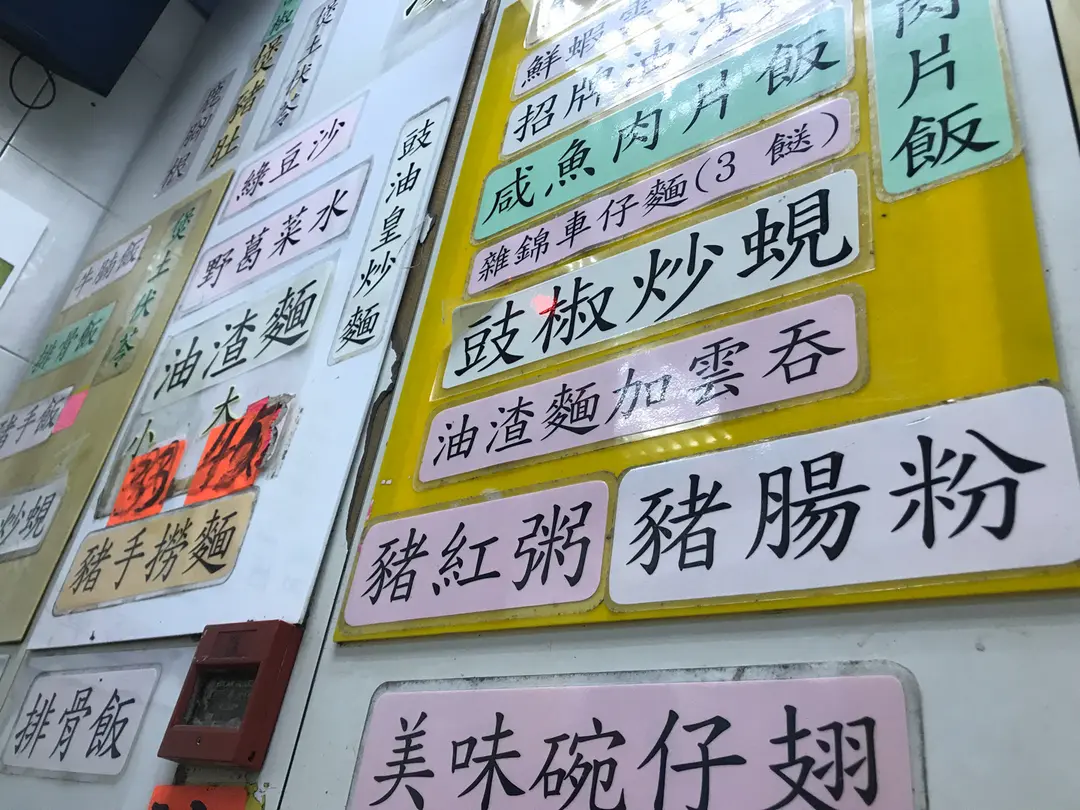 椒
煲豬肚
煲土伏苓
綠豆沙
野葛菜水
豉油皇炒麵
牛腩飯
煲土伏苓
排骨飯
豬手飯
炒蜆
油渣麵
小 大
33 45
豬手撈麵
排骨飯
鮮蝦雲
招牌油渣
咸魚肉片飯
肉片飯
雜錦車仔麵(3 餸)
豉椒炒蜆
油渣麵加雲吞
豬紅粥
豬腸粉
美味碗仔翅